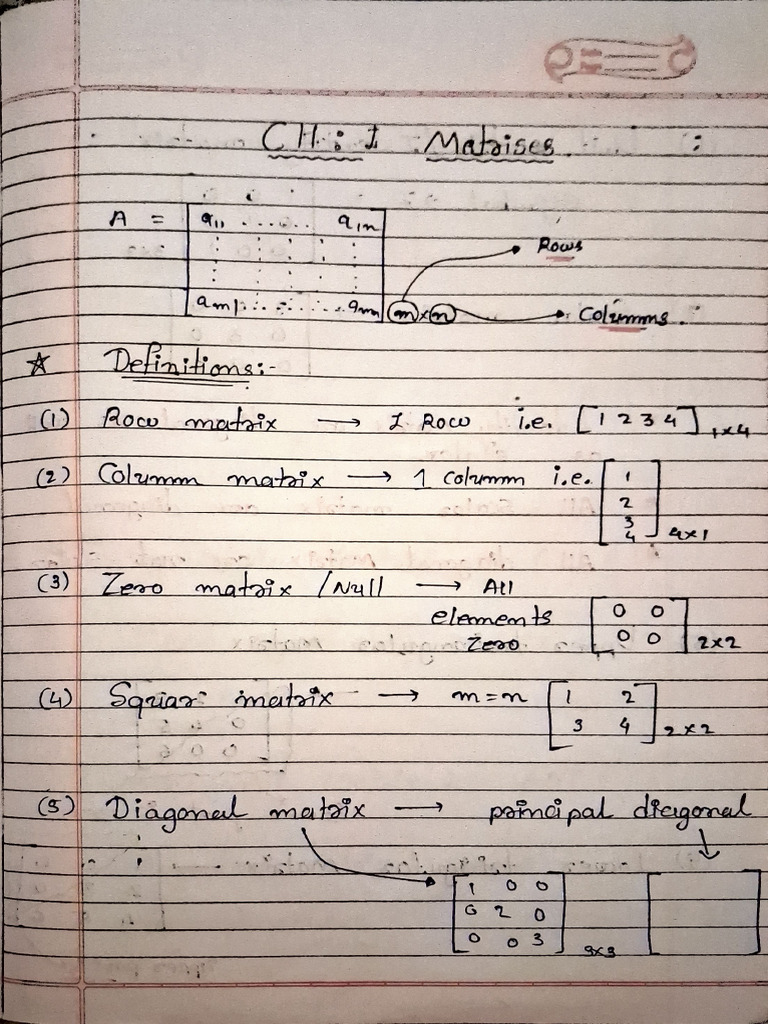 CH: 1 Matrises :
A = [ a11 ...... a1n
am1 ........ amn ] m×n
→ Rows
→ Columns.
☆ Definitions:-
(1) Row matrix → 1 Row i.e. [1 2 3 4] 1×4
(2) Column matrix → 1 column i.e. [ 1
2
3
4 ] 4×1
(3) Zero matrix /Null → All
elements
zero
[ 0 0
0 0 ] 2×2
(4) Sqriar matrix → m=n [ 1 2
3 4 ] 2×2
(5) Diagonal matrix → principal diagonal
[ 1 0 0
0 2 0
0 0 3 ] 3×3 [ ]